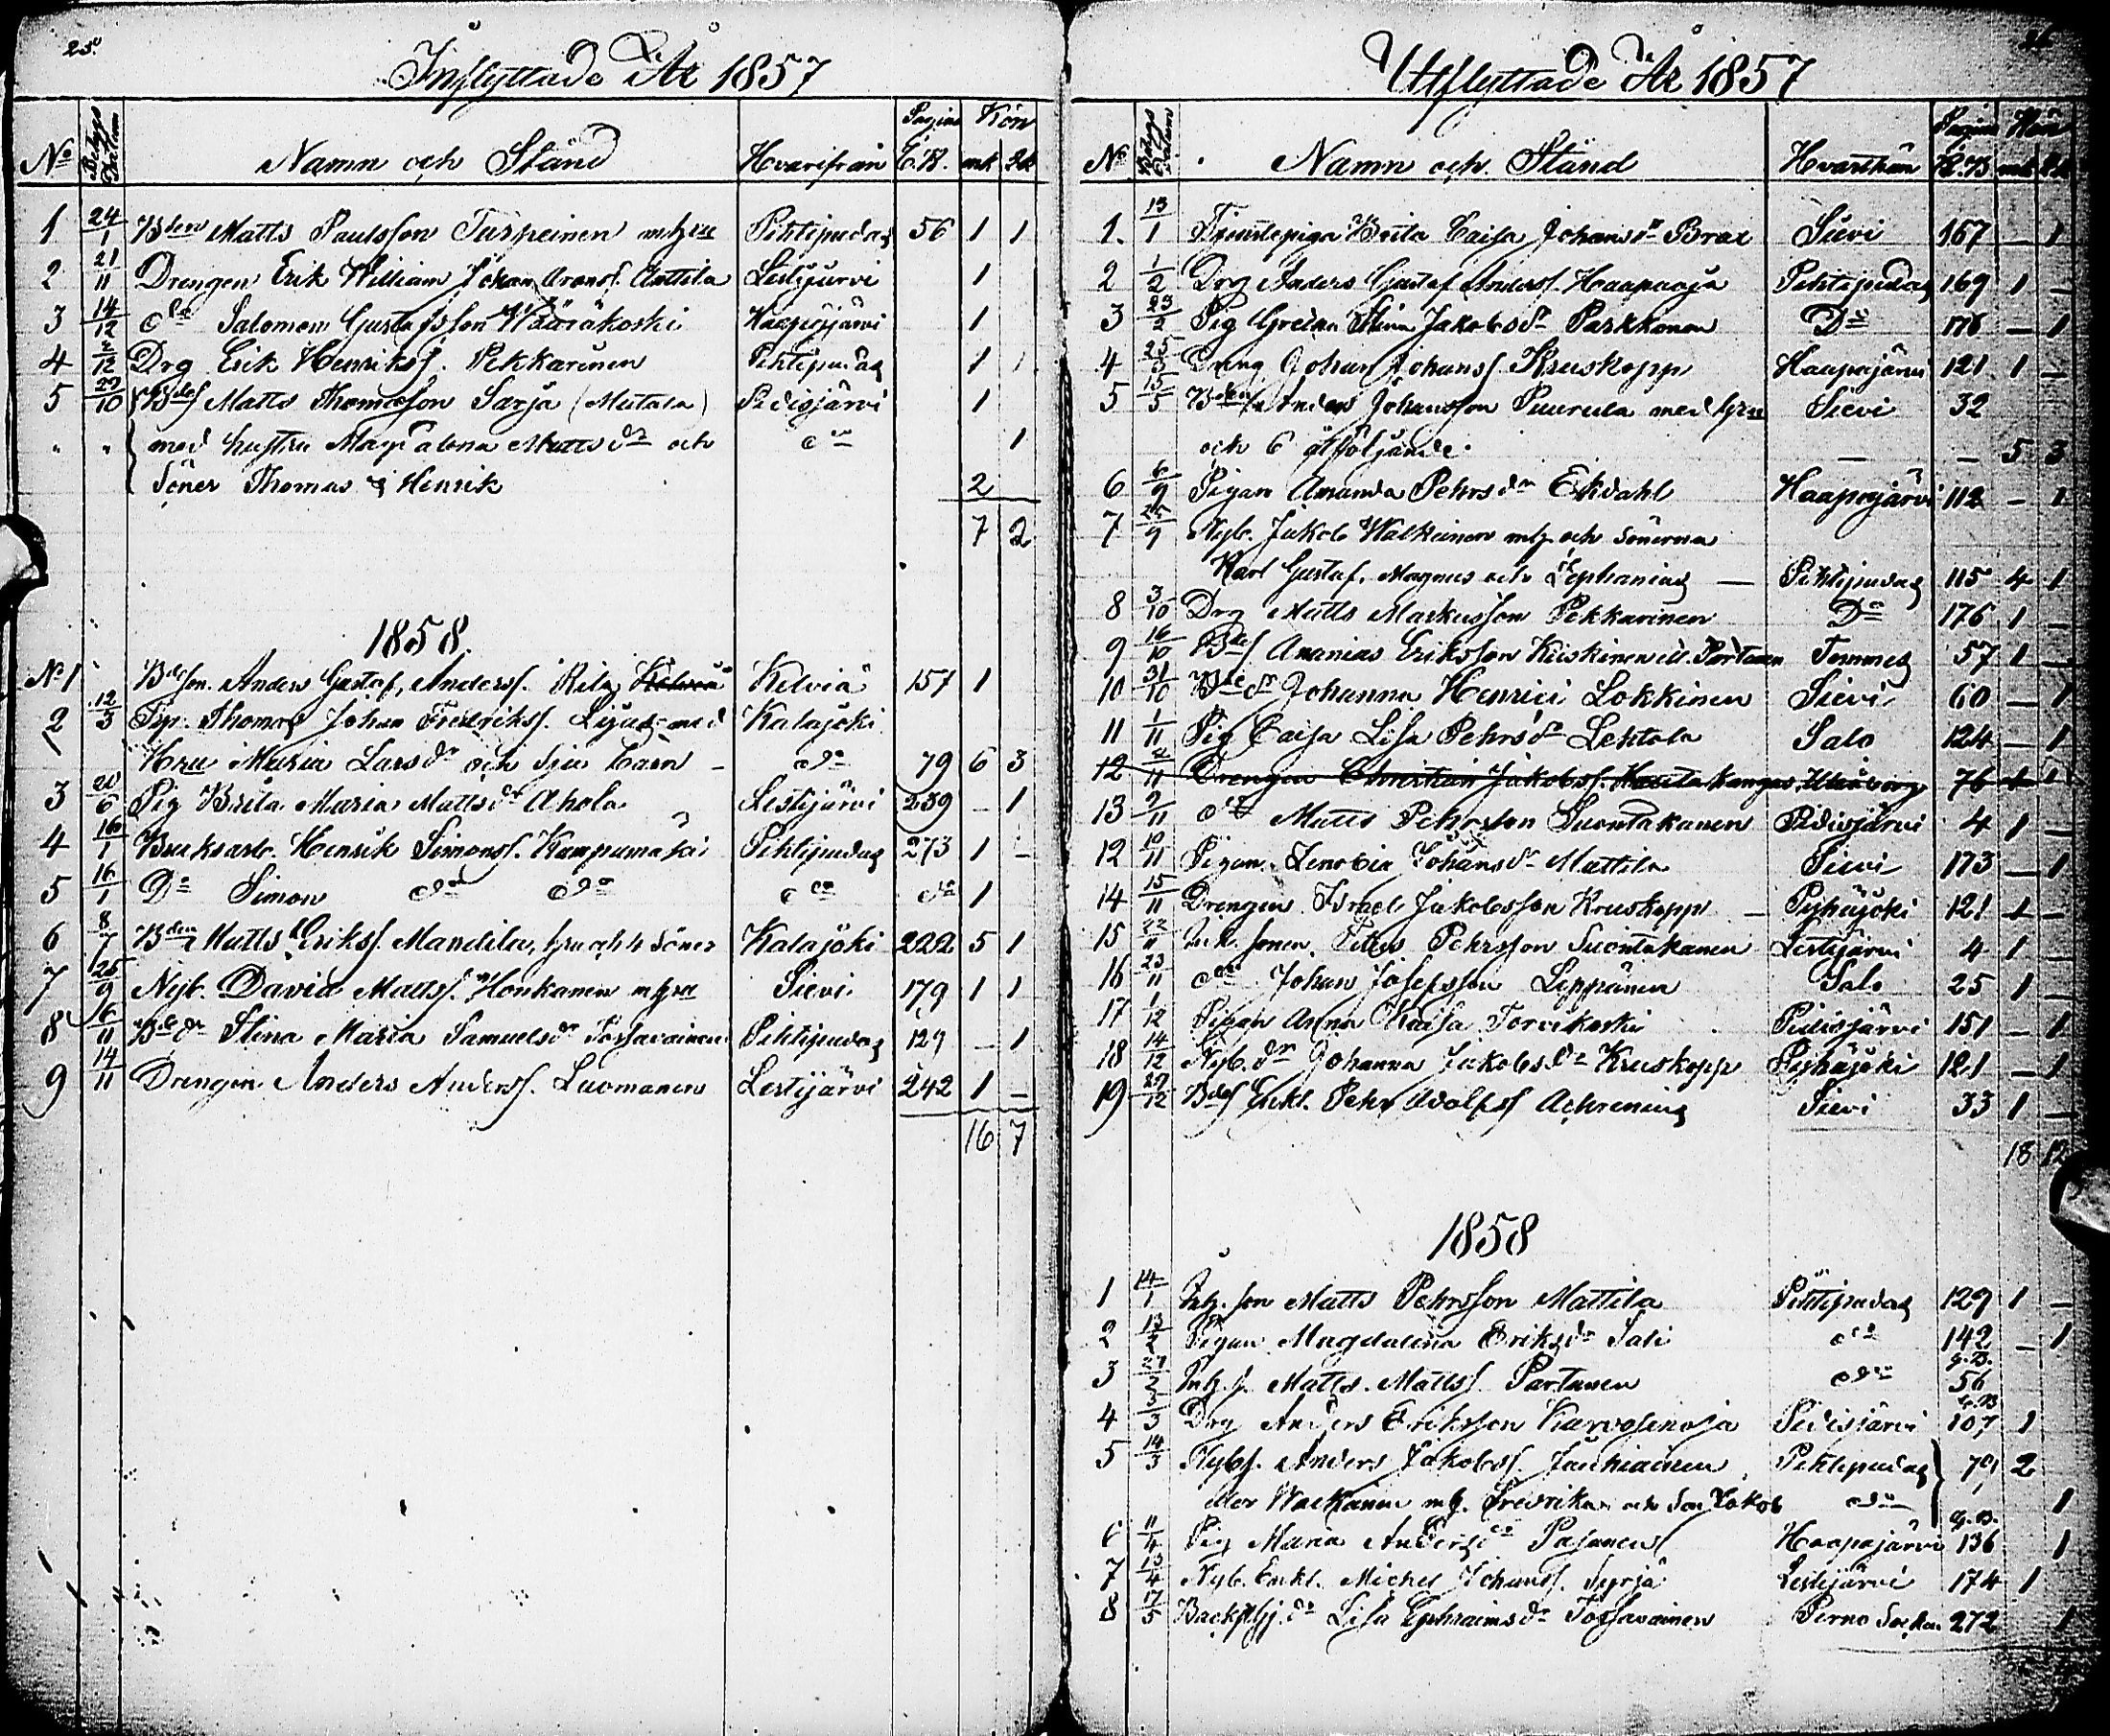 25.
Inflyttade År 1857
No Betygs Datum Namn och Stånd Hvarifrån Pagina K.B. Kön mk qk
1 24/1 Bden Matts Paulsson Turpeinen m hru Pihtipudas 56 1 1
2 21/11 Drengen Erik William Johan Aronss. Anttila Lestijärvi 1
3 14/12 do Salomon Gustafsson Wääräkoski Haapajärvi 1
4 12 Drg Erik Henrikss. Pekkarinen Pihtipudas 1
5 29/10 Bdes Matts Thomasson Sarja (Mutala) Pidisjärvi 1
" " med hustru Magdalena Mattsdr och do 1
Söner Thomas & Henrik 2
7 2
1858.
No 1 Bdeson. Anders Gustaf, Anderss. Rita Kelviä Kelviä 157 1
2 12/3 Thomas Johan Fredrikss. med Kalajoki
Hru Maria Larsdr och sju barn – do 79 6 3
3 20/6 Pig Brita Maria Mattsdr Ahola Lestijärvi 239 – 1
4 16/1 Bruksarb. Henrik Simonss. Kumpumäki Pihtipudas 273 1 –
5 16/1 Do Simon do do do do 1
6 8/7 Bden Matts Erikss. Mandila, hru och 4 söner Kalajoki 222 5 1
7 25/9 Nyb. David Mattss. Honkanen m hru Sievi 179 1 1
8 6/11 Bdedr Stina Maria Samuelsdr Torfavainen Pihtipudas 129 – 1
9 14/11 Drengen Anders Anderss. Luomanen Lestijärvi 242 1 –
16 7
26
Utflyttade År 1857
No Betygs Datum Namn och Stånd Hvarthän Pagina K.B. Kön mk qk
1. 13/1 Tjenstepiga Brita Caisa Johansdr Brax Sievi 167 – 1
2 1/2 Drg Anders Gustaf Anderss. Haapaoja Pihtipudas 169 1 –
3 23/2 Pig Greta Stina Jakobsdr Parkkonen Do 176 – 1
4 25/3 Dreng Johan Johanss. Kruskopp Haapajärvi 121 1 –
5 15/5 Bden Anders Johansson Puurula med hru Sievi 32
och 6 åtföljande. – – 5 3
6 6/9 Pigan Amanda Pehrsdr Ekdahl Haapajärvi 112 – 1
7 25/9 Nyb. Jakob Walkeinen m h. och sönerna
Karl Gustaf, Magnus och Zephanias – Pihtipudas 115 4 1
8 3/10 Drg Matts Markusson Pekkarinen Do 176 1 –
9 16/10 Bdes Ananias Eriksson Kiiskinen ell. Partanen 57 1 –
10 31/10 Bdedr Johanna Henrici Lokkinen Sievi 60 – 1
11 1/11 Pig Caisa Lisa Pehrsdr Lehtola Salo 124 – 1
12 2/11 Drengen Christian Jakobss. Uleåborg 76 1 1
13 9/11 do Matts Pehrsson Suontakanen Pidisjärvi 4 1 –
12 10/11 Pigan Zenobia Johansdr Mattila Sievi 173 – 1
14 15/11 Drengen Israel Jakobsson Kruskopp – Pyhäjoki 121 1 –
15 22/11 Inh. sonen Petrus Pehrsson Suontakanen Lestijärvi 4 1 –
16 23/11 do Johan Josefsson Leppänen Salo 25 1 –
17 1/12 Pigan Anna Kaisa Torvikoski Pidisjärvi 151 – 1
18 14/12 Nyb.dr Johanna Jakobsdr Kruskopp Pyhäjoki 121 – 1
19 29/12 Bdes Enkl. Pehr Adolfss Achrenius Sievi 33 1 –
18 12
1858
1 14/1 Inh. son Matts Pehrsson Mattila Pihtipudas 129 1 –
2 13/2 Pigan Magdalena Eriksdr Sali do 142 – 1
3 27/2 Inh. s. Matts Mattss. Partanen do g.B. 56
4 3/3 Drg Anders Eriksson Karvosenoja Pidisjärvi g.B 107 1
5 14/3 Nybs. Anders Jakobss. Jauhiainen Pihtipudas 79 2
eller Walkainen m h. Fredrika och Son Jakob do 1
6 11/4 Pig Maria Andersdr Pajanen Haapajärvi g.B. 136 1
7 13/4 Nyb. Enkl. Michel Johanss. Syrjä Lestijärvi 174 1
8 17/5 Backstgj.dr Lisa Ephraimsdr Torfavainen Perno Socken 272 1